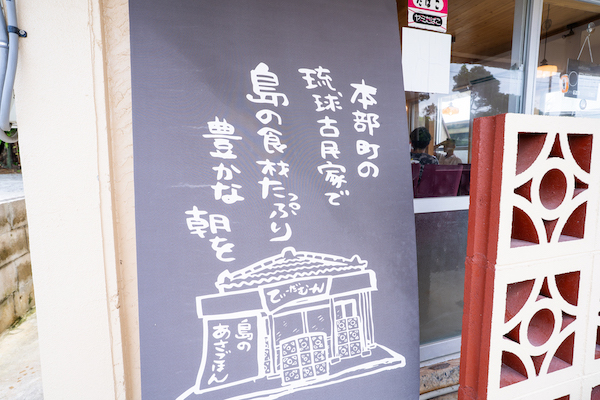 本部町の
琉球古民家で
島の食材たっぷり
豊かな
朝を
てぃーだむーん
島の
あさごはん